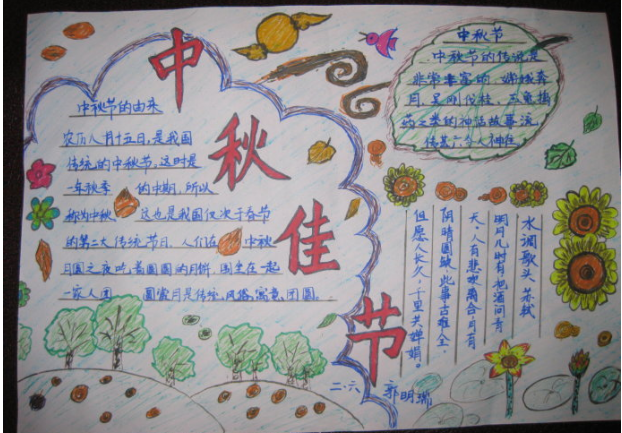 中秋佳节
中秋节的由来
农历八月十五日,是我国
传统的中秋节,这时是
一年秋季 的中期,所以
称为中秋 这也是我国仅次于春节
的第二大传统节日,人们在 中秋
月圆之夜吃着圆圆的月饼,围坐在一起
一家人团 圆赏月是传统,风格,寓意,团圆。
中秋节
中秋节的传说是
非常丰富的,嫦娥奔
月,吴刚伐桂,玉兔捣
药之类的神话故事流
传甚广令人神往
水调歌头 苏轼
明月几时有把酒问青
天,人有悲欢离合月有
阴晴圆缺,此事古难全,
但愿人长久,千里共婵娟。
二.六 郭明瑞